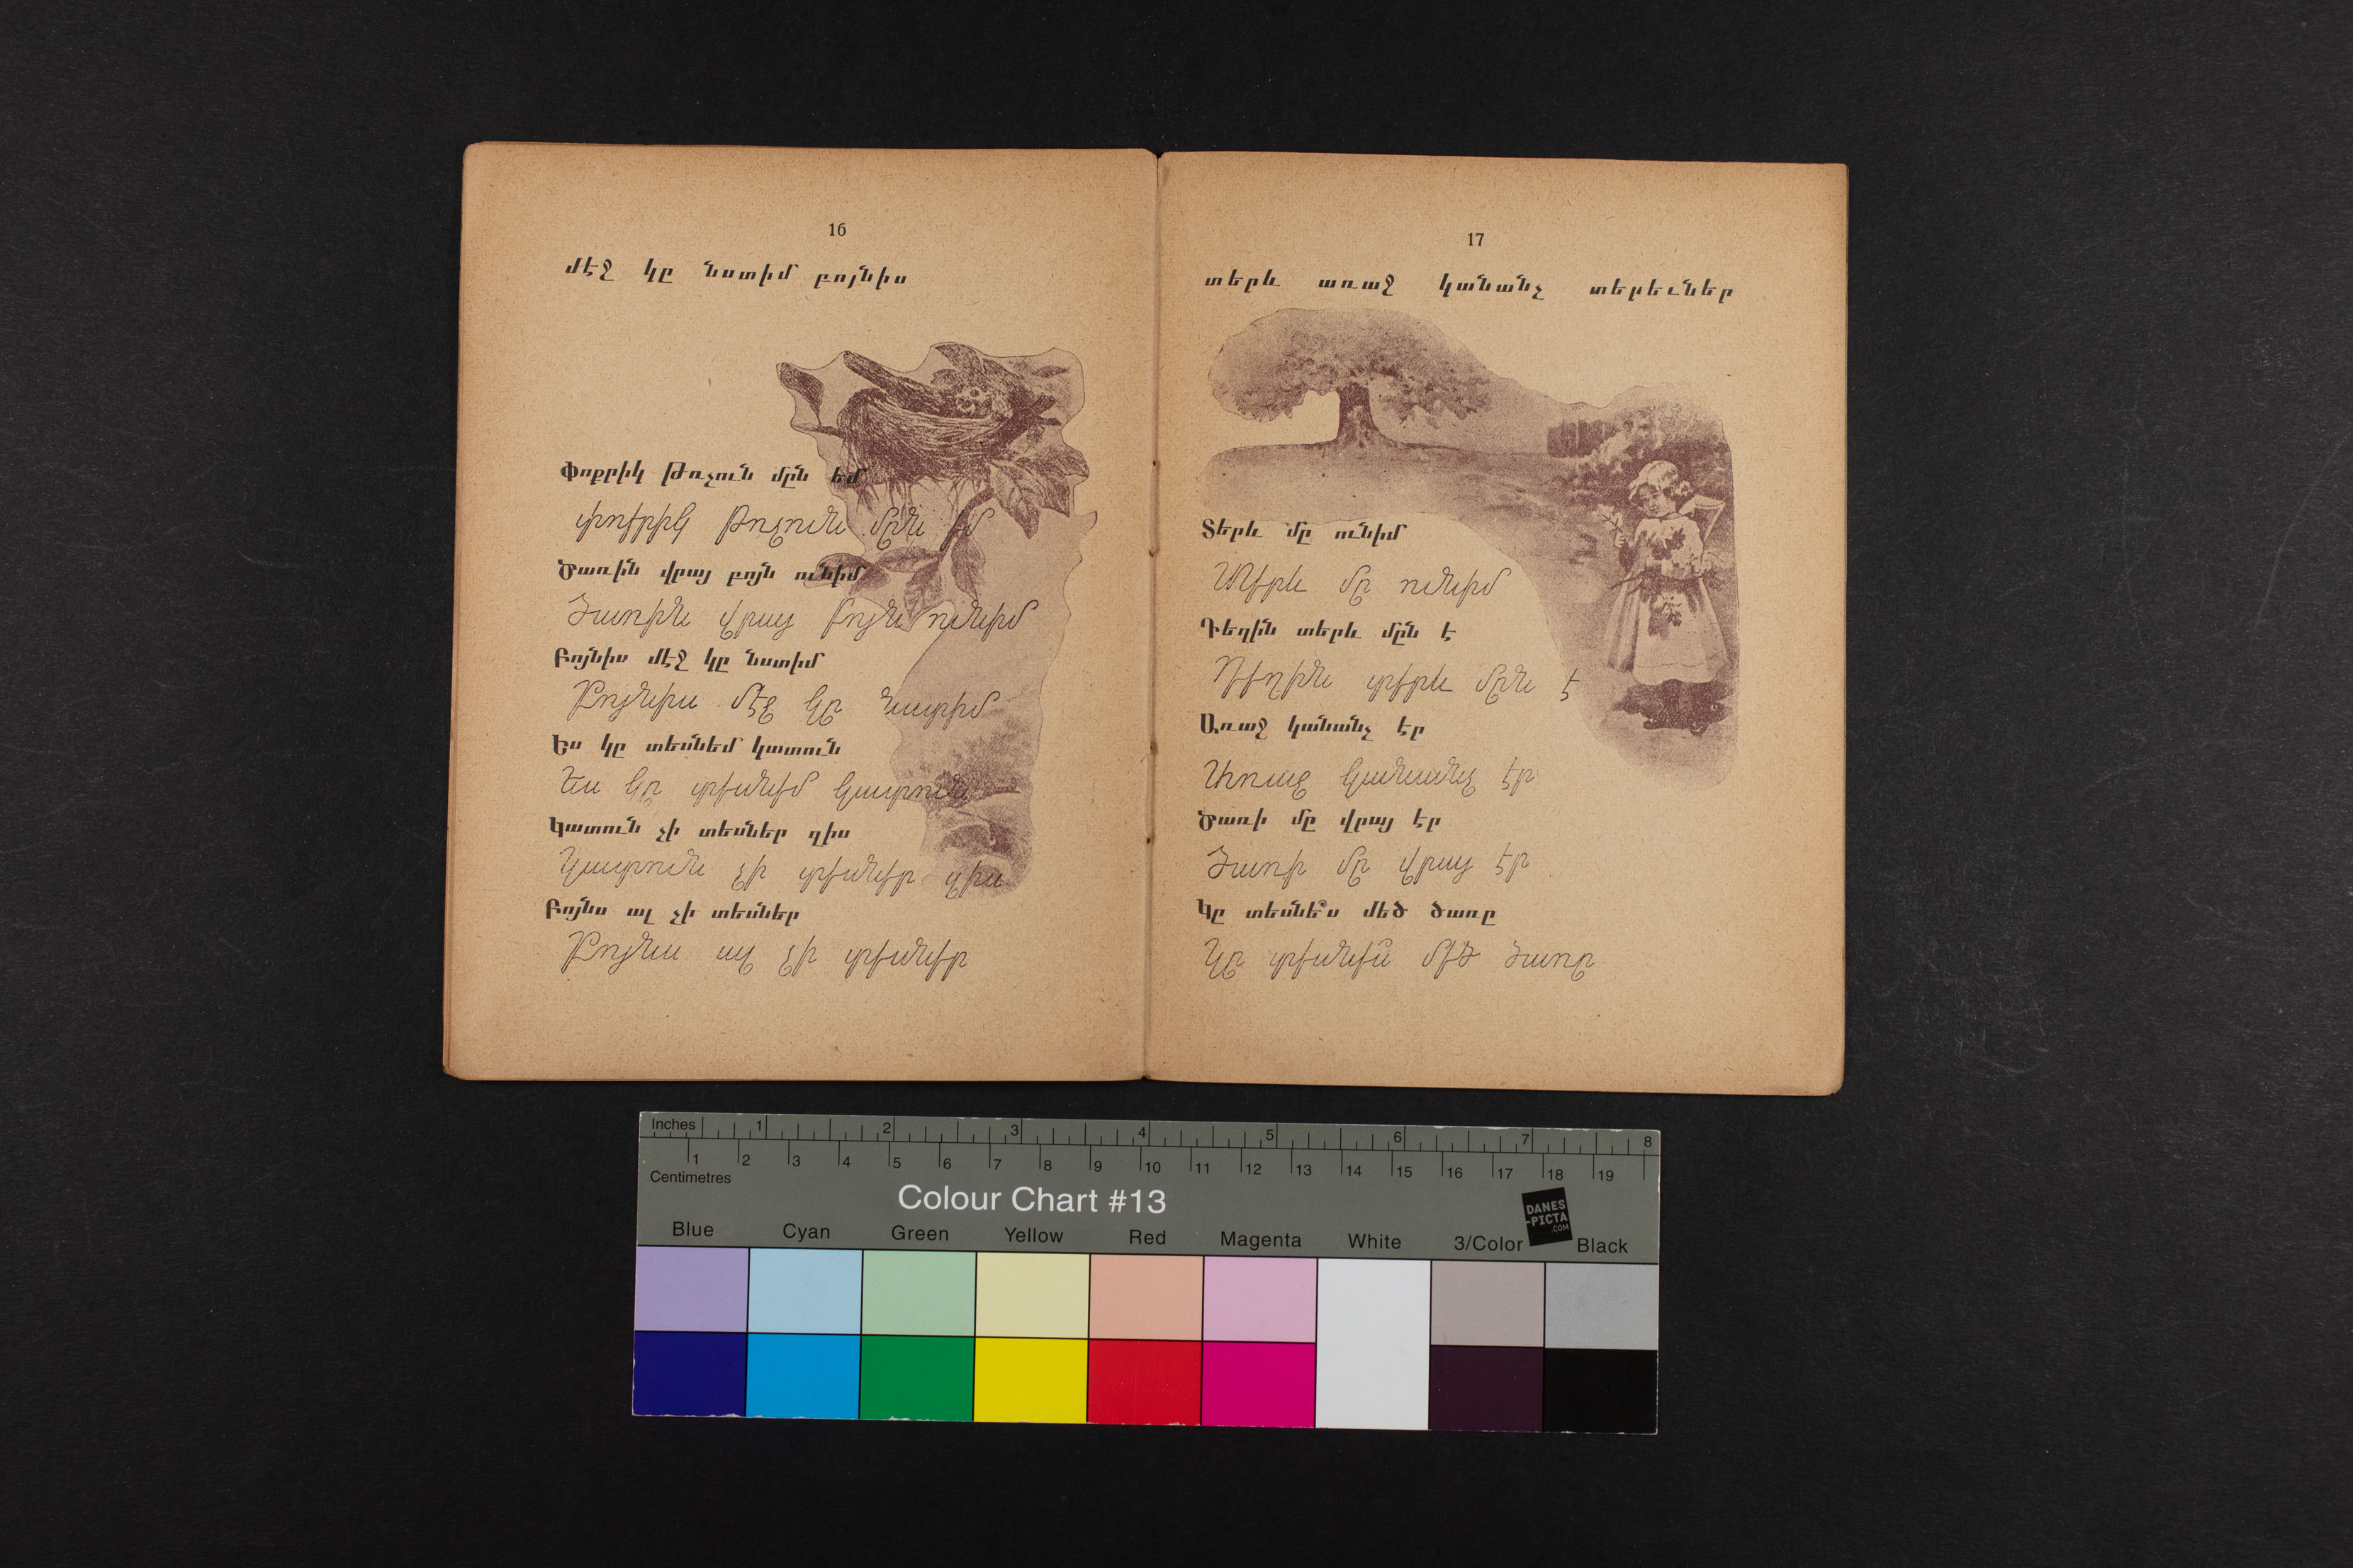 16
մէջ կը նստիմ բոյնիս
Փոքրիկ Թռչուն մըն եմ
փոքրիկ Թռչուն մըն եմ
Ծառին վրայ բոյն ունիմ
Ծառին վրայ բոյն ունիմ
Բոյնիս մէջ կը նստիմ
Բոյնիս մէջ կը նստիմ
Ես կը տեսնեմ կատուն
Ես կը տեսնեմ կատուն
Կատուն չի տեսներ զիս
Կատուն չի տեսներ զիս
Բոյնս ալ չի տեսներ
Բոյնս ալ չի տեսներ
17
տերև առաջ կանանչ տերեւներ
Տերև մը ունիմ
Տերև մը ունիմ
Դեղին տերև մըն է
Դեղին տերև մըն է
Առաջ կանանչ էր
Առաջ կանանչ էր
Ծառի մը վրայ էր
Ծառի մը վրայ էր
Կը տեսնե՞ս մեծ ծառը
Կը տեսնես՞ մեծ ծառը
Inches 1 2 3 4 5 6 7 8
1 2 3 4 5 6 7 8 9 10 11 12 13 14 15 16 17 18 19
Centimetres
Colour Chart #13
DANES
-PICTA
.COM
Blue Cyan Green Yellow Red Magenta White 3/Color Black